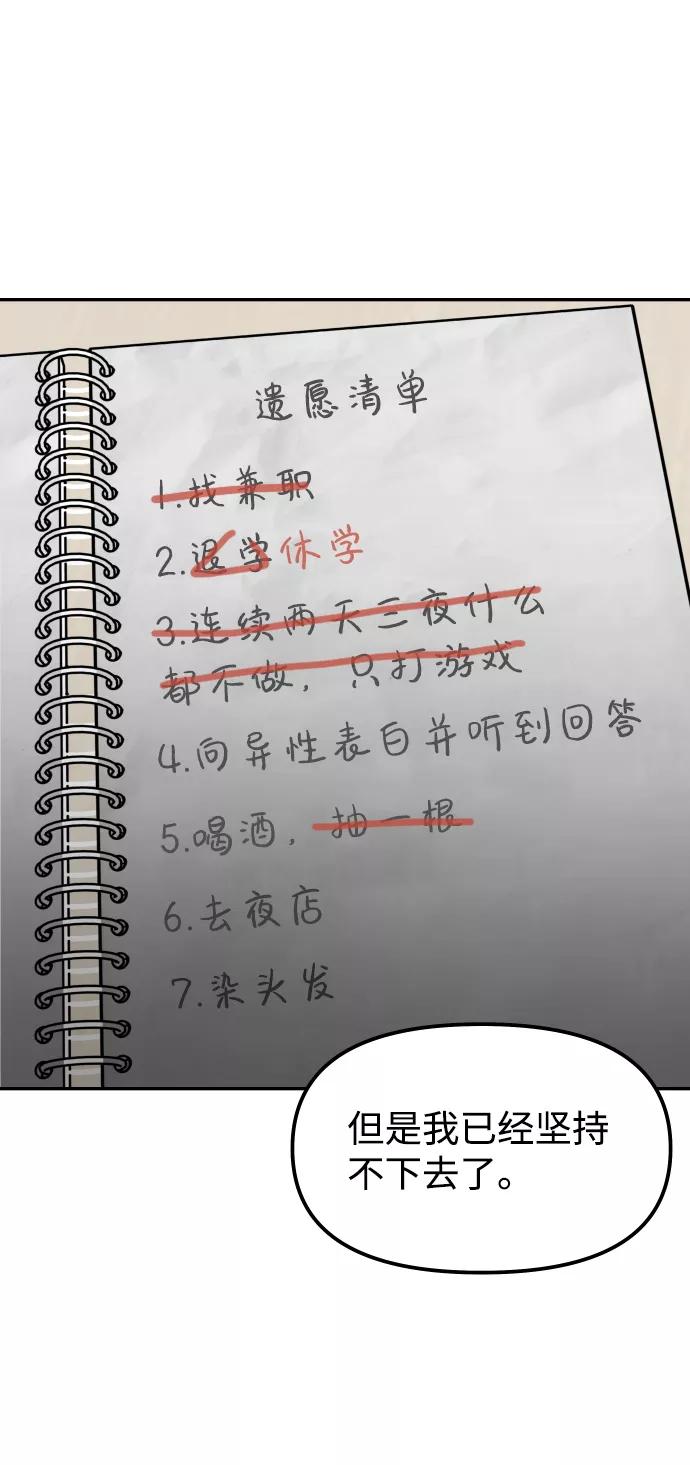 遗愿清单
1.找兼职
2.退学休学
3.连续两天三夜什么
都不做，只打游戏
4.向异性表白并听到回答
5.喝酒，抽一根
6.去夜店
7.染头发
但是我已经坚持
不下去了。